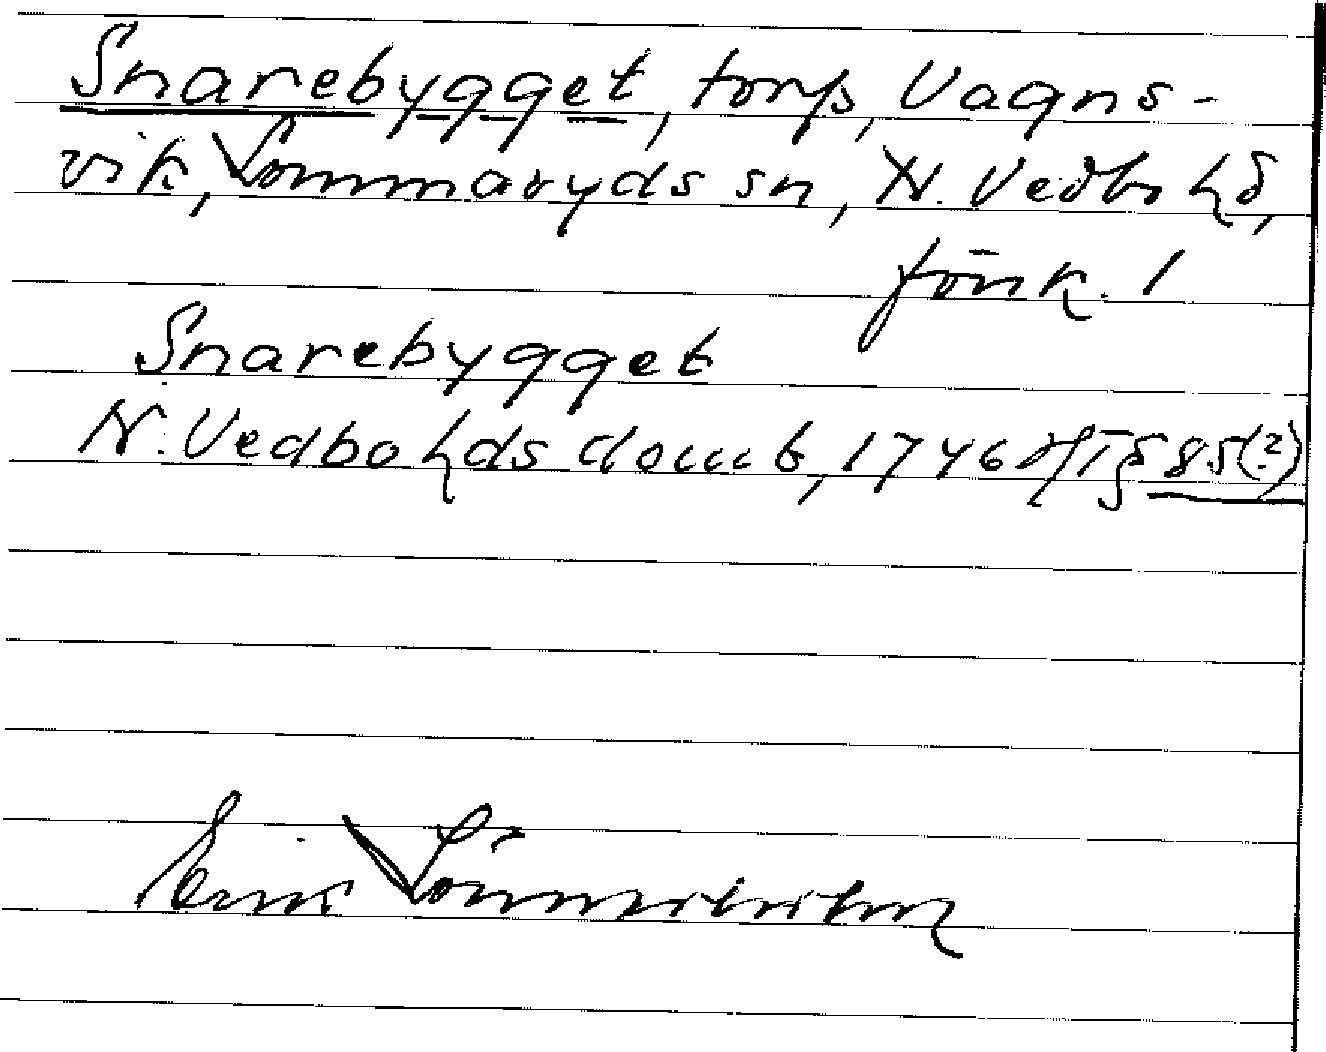 Snarebygget, torp, Vagns-
vik, Lommaryds sn, N. Vedbo hd,
Jönk. l
Snarebygget
N. Vedbo hds domb, 1746 HT § 85(?)
Erik